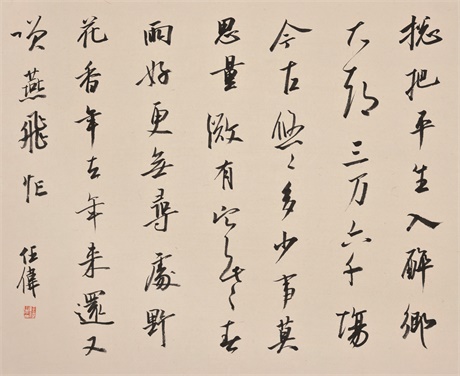 揔把平生入醉鄉
大都三万六千場
今古悠〻多少事莫
思量微有寒些春
雨好更無尋處野
花香年去年来還又
咲燕飛忙
任偉